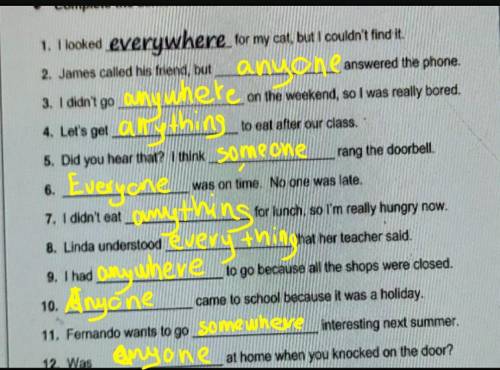 Complete the
1. I looked everywhere for my cat, but I couldn't find it.
2. James called his friend, but anyone answered the phone.
3. I didn't go anywhere on the weekend, so I was really bored.
4. Let's get anything to eat after our class.
5. Did you hear that? I think someone rang the doorbell.
6. Everyone was on time. No one was late.
7. I didn't eat anything for lunch, so I'm really hungry now.
8. Linda understood everything that her teacher said.
9. I had anywhere to go because all the shops were closed.
10. Anyone came to school because it was a holiday.
11. Fernando wants to go somewhere interesting next summer.
12. Was anyone at home when you knocked on the door?